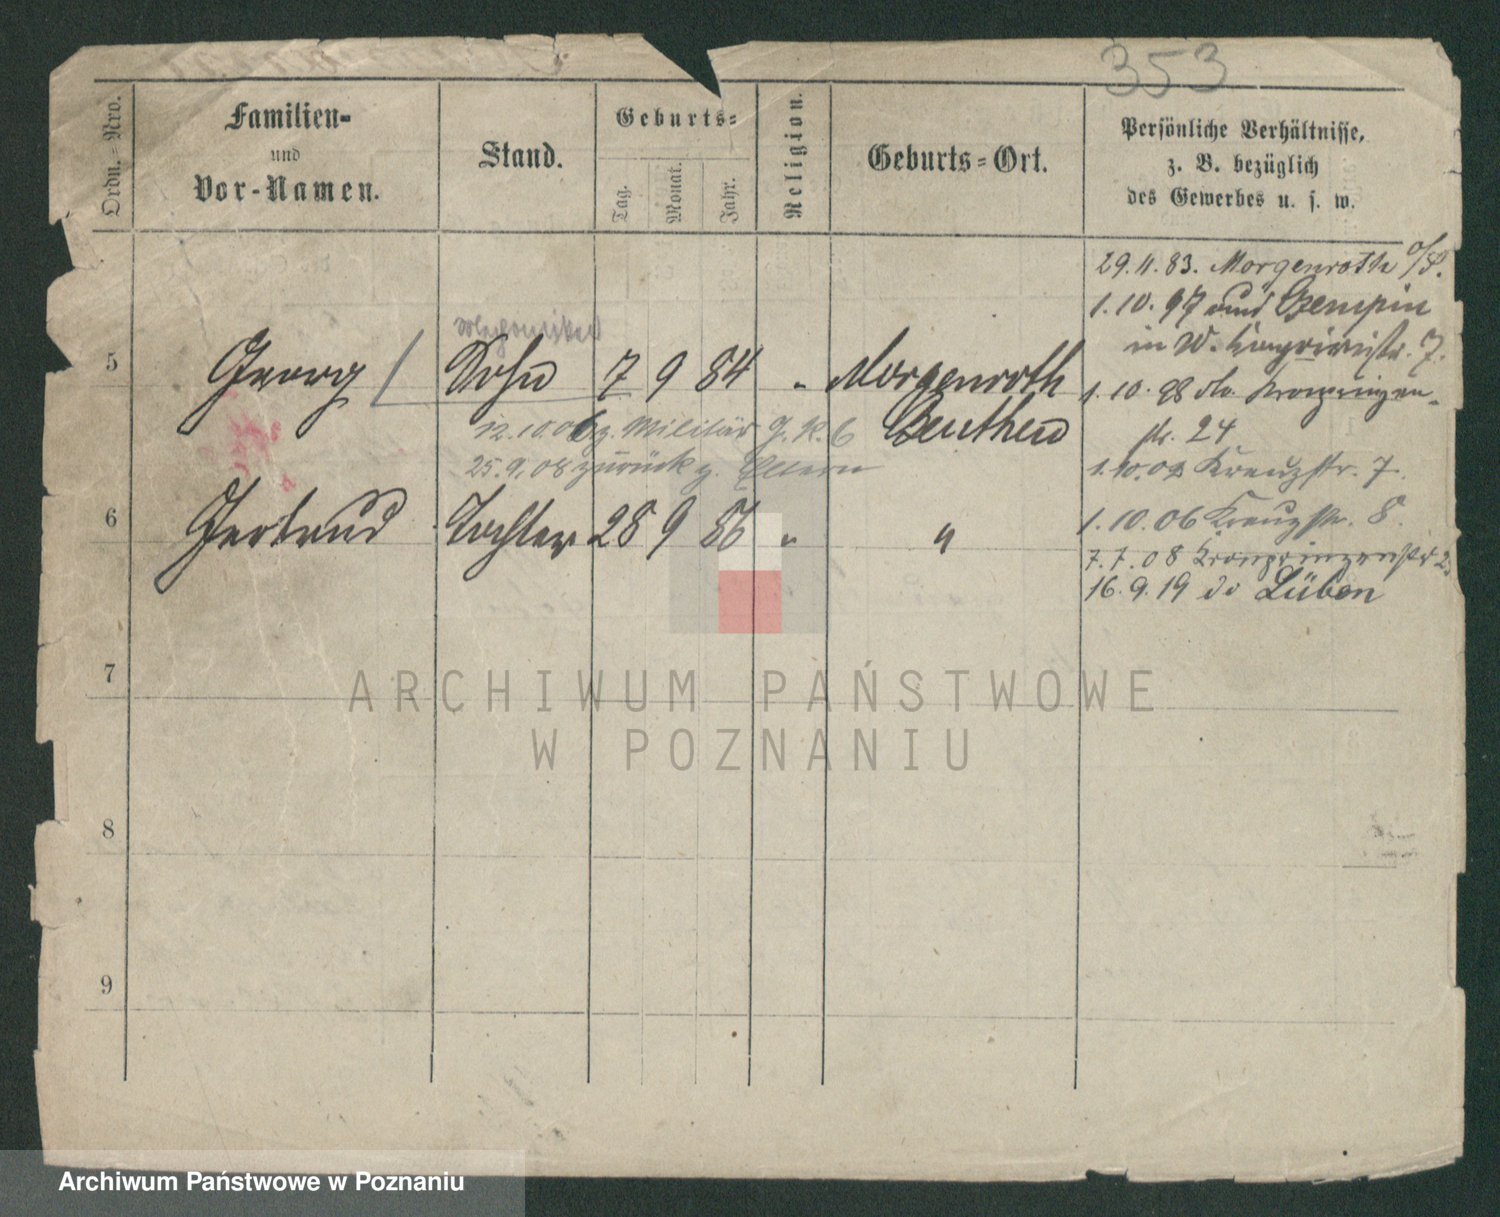 353
Ordn.-Nro.
Familien-
und
Vor-Namen.
Stand.
Geburts-
Tag.
Monat.
Jahr.
Religion.
Geburts-Ort.
Persönliche Verhältnisse,
z. B. bezüglich
des Gewerbes u. s. w.
29.11.83. Morgenroth O/S.
1.10.97 und Czempin
in W. 7.
5 Georg Sohn 7 9 84 " Morgenroth
Beuthen
1.10.98 Kronprinzen-
str. 24
12.10.06 z. Militär G. R. 6
25.9.08 zurück z. Eltern
1.10.02 Kreuzstr. 7.
6 Gertrud Tochter 28 9 86 " "
1.10.06 Kreuzstr. 8.
7.7.08 Kronprinzenstr
16.9.19 do Lüben
7
8
9
ARCHIWUM PAŃSTWOWE
W POZNANIU
Archiwum Państwowe w Poznaniu